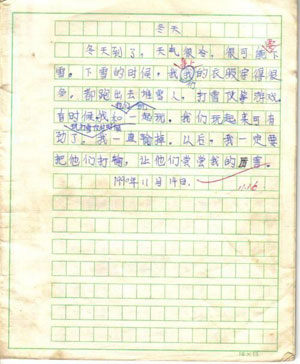 冬天
冬天到了，天气很冷，很可能下
雪。下雪的时候，我的衣服穿得很
多，都跑出去堆雪人，打雪仗等游戏。
有时候我和一起玩，我们玩起来可有
劲了。我一直输掉。以后，我一定要
把他们打输，让他们尝尝我的厉害。
1990年11月19日.